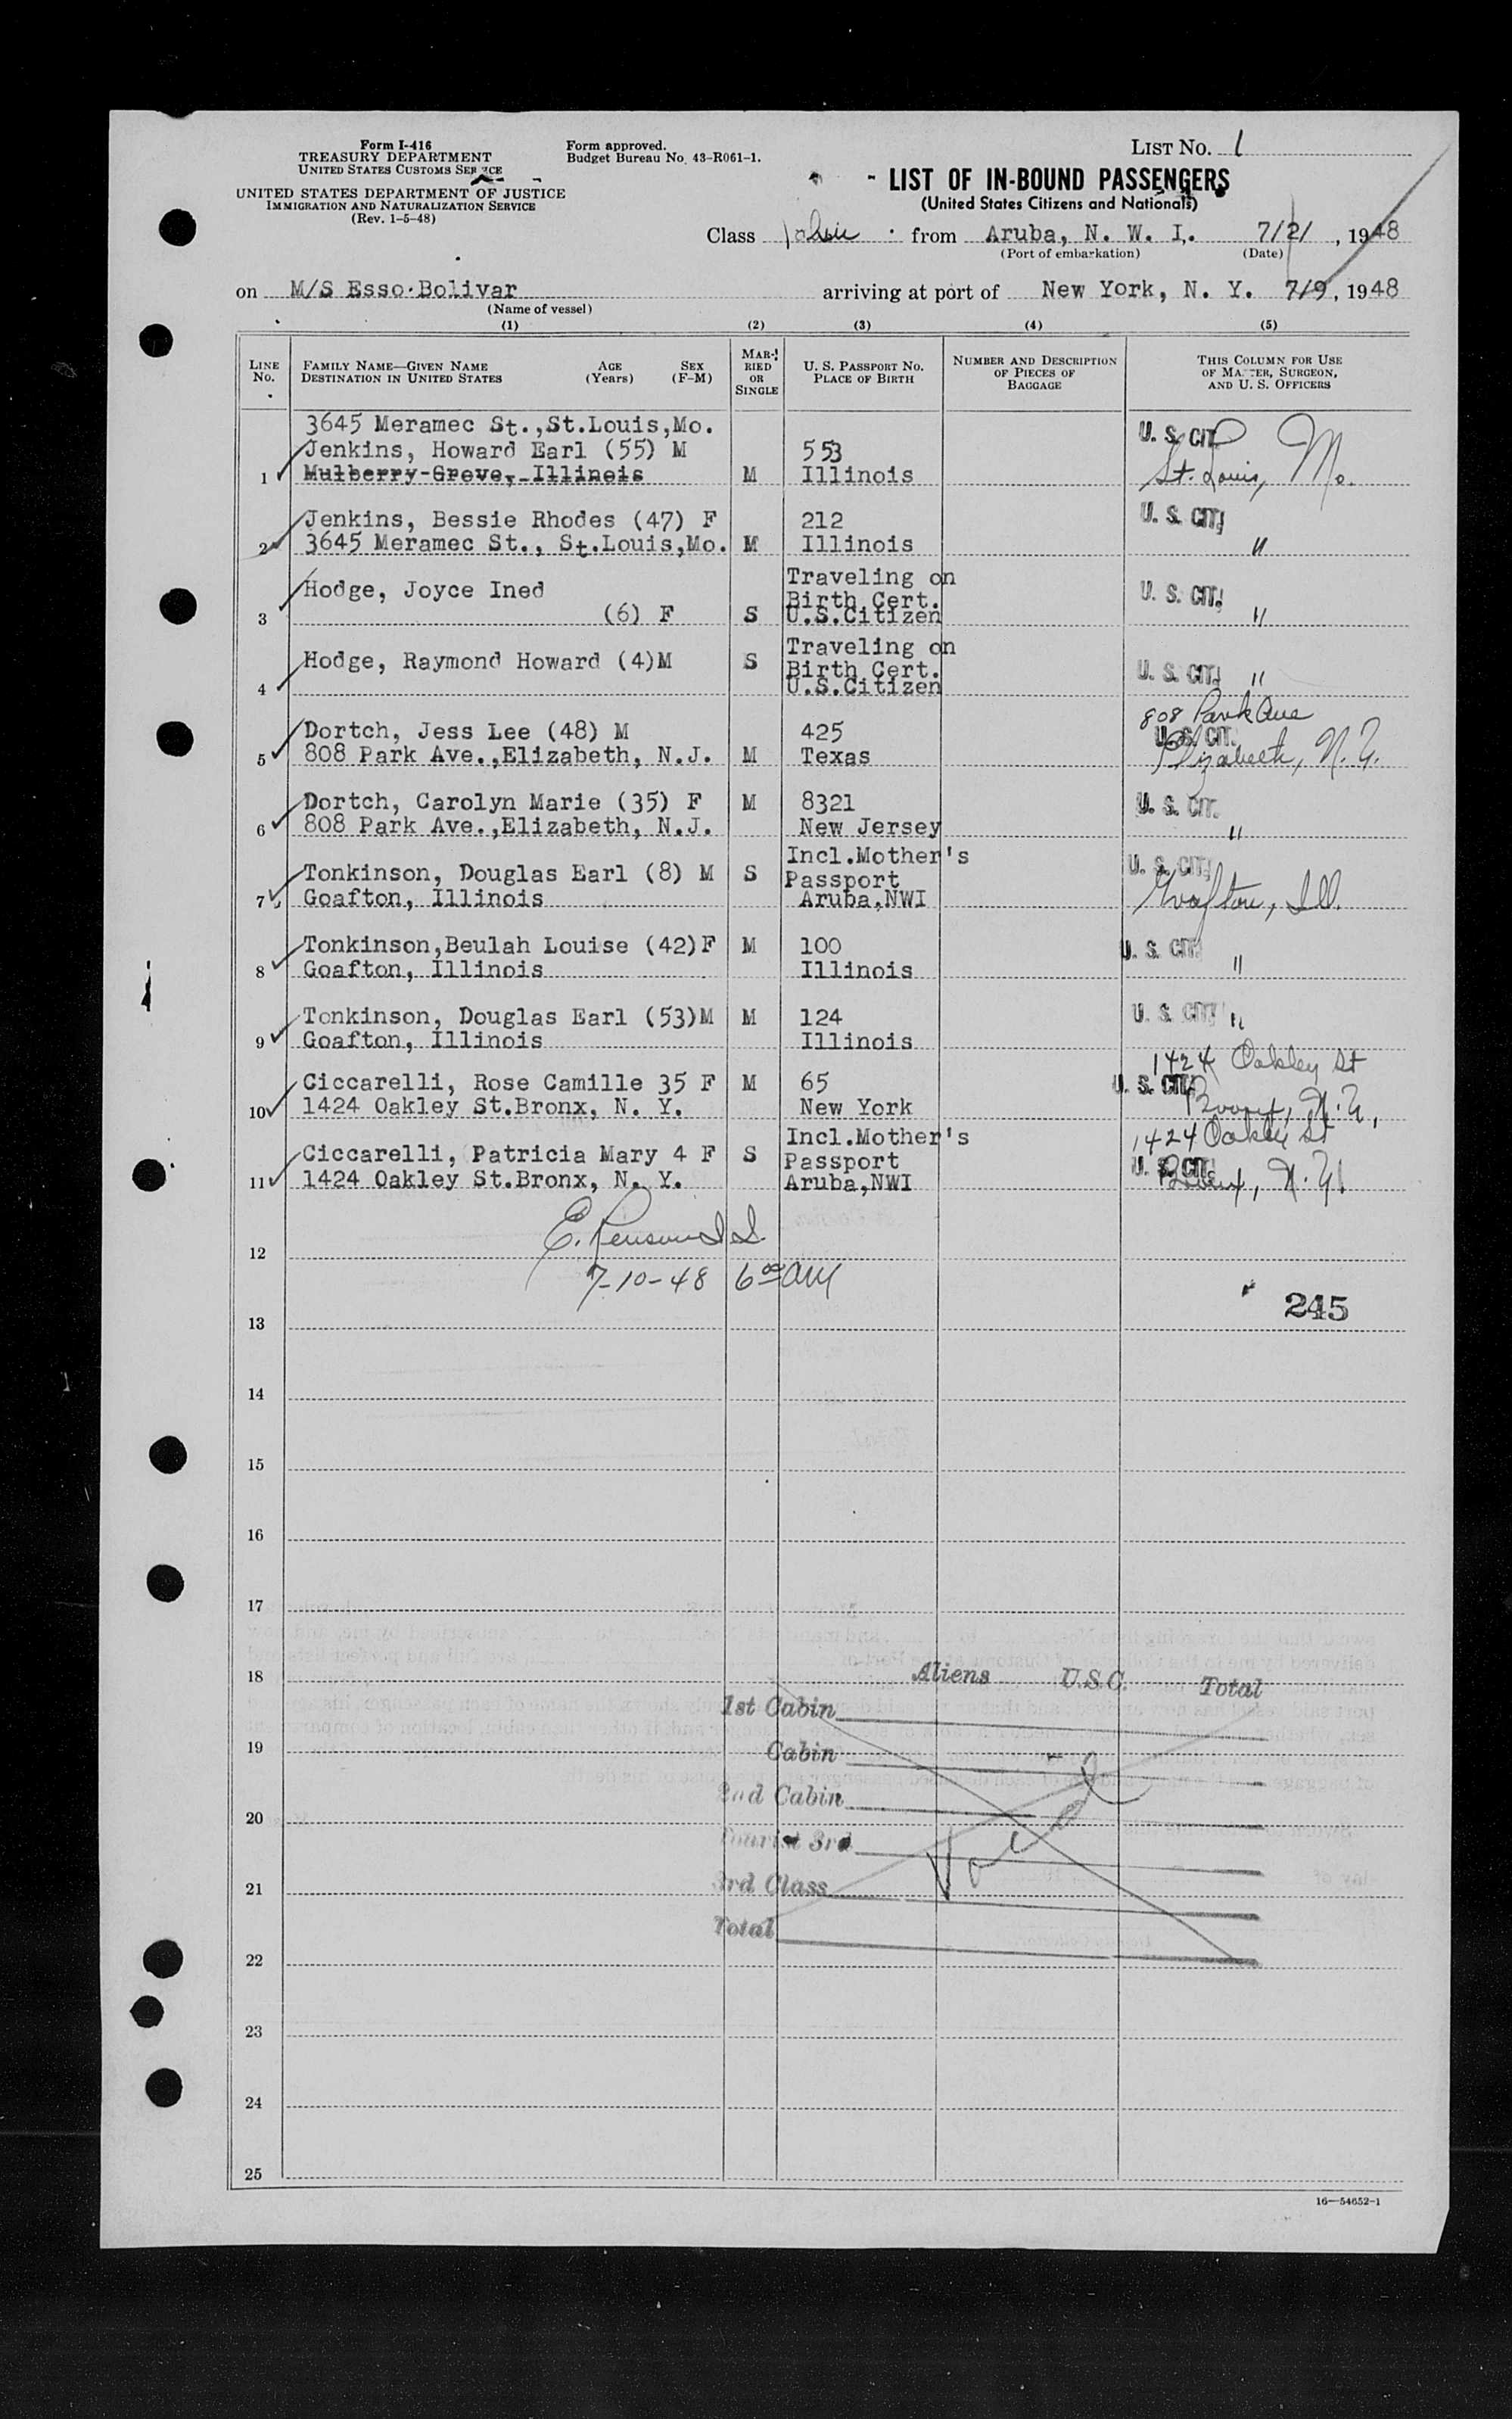 Form I-416
TREASURY DEPARTMENT
UNITED STATES CUSTOMS SERVICE
UNITED STATES DEPARTMENT OF JUSTICE
IMMIGRATION AND NATURALIZATION SERVICE
(Rev. 1-5-48)
Form approved.
Budget Bureau No. 43-R061-1.
LIST NO. 1
LIST OF IN-BOUND PASSENGERS
(United States Citizens and Nationals)
Class from Aruba, N. W. I. 7/2/, 1948
(Port of embarkation) (Date)
on M/S Esso Bolivar arriving at port of New York, N. Y. 7/9, 1948
(Name of vessel)
(1) (2) (3) (4) (5)
LINE No. FAMILY NAME—GIVEN NAME DESTINATION IN UNITED STATES AGE (Years) SEX (F-M) MARRIED OR SINGLE U. S. PASSPORT NO. PLACE OF BIRTH NUMBER AND DESCRIPTION OF PIECES OF BAGGAGE THIS COLUMN FOR USE OF MASTER, SURGEON, AND U. S. OFFICERS
3645 Meramec St.,St.Louis,Mo.
Jenkins, Howard Earl (55) M 553 U. S. CIT.
1 Mulberry-Grove,-Illinois M Illinois St. Louis, Mo.
Jenkins, Bessie Rhodes (47) F 212 U. S. CIT.
2 3645 Meramec St., St.Louis,Mo. M Illinois "
Hodge, Joyce Ined Traveling on U. S. CIT.
Birth Cert.
3 (6) F S U.S.Citizen "
Traveling on
Hodge, Raymond Howard (4)M S Birth Cert. U. S. CIT. "
4 U.S.Citizen
808 Park Ave
Dortch, Jess Lee (48) M 425 U. S. CIT.
5 808 Park Ave.,Elizabeth, N.J. M Texas Elizabeth, N.J.
Dortch, Carolyn Marie (35) F M 8321 U. S. CIT.
6 808 Park Ave.,Elizabeth, N.J. New Jersey "
Incl.Mother's
Tonkinson, Douglas Earl (8) M S Passport U. S. CIT.
7 Goafton, Illinois Aruba,NWI Grafton, Ill.
Tonkinson,Beulah Louise (42)F M 100 U. S. CIT.
8 Goafton, Illinois Illinois "
Tonkinson, Douglas Earl (53)M M 124 U. S. CIT. "
9 Goafton, Illinois Illinois
1424 Oakley St
Ciccarelli, Rose Camille 35 F M 65 U. S. CIT.
10 1424 Oakley St.Bronx, N. Y. New York Bronx, N.Y.
Incl.Mother's 1424 Oakley St
Ciccarelli, Patricia Mary 4 F S Passport U. S. CIT.
11 1424 Oakley St.Bronx, N. Y. Aruba,NWI Bronx, N.Y.
12
7-10-48 6 00 AM
245
13
14
15
16
17
18 Aliens U.S.C. Total
1st Cabin
19 Cabin
2nd Cabin
20
Tourist 3rd
21 3rd Class
Void
Total
22
23
24
25
16—54652-1